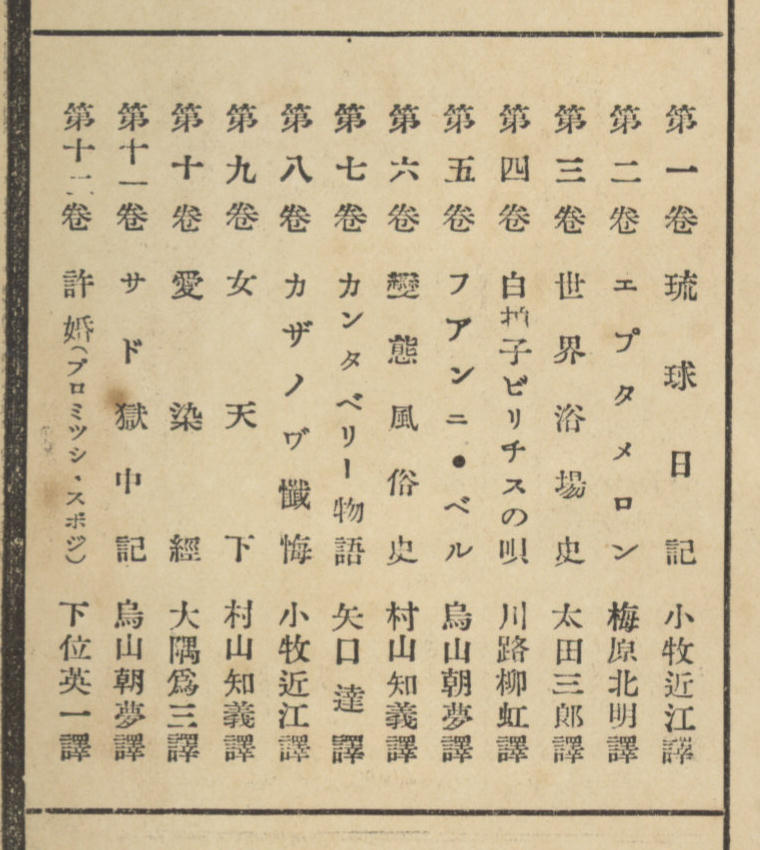 第一卷 琉球日記 小牧近江譯
第二卷 エプタメロン 梅原北明譯
第三卷 世界浴場史 太田三郎譯
第四卷 白拍子ビリチスの唄 川路柳虹譯
第五卷 フアンニ・ベル 烏山朝夢譯
第六卷 變態風俗史 村山知義譯
第七卷 カンタベリー物語 矢口達譯
第八卷 カザノヴ懺悔 小牧近江譯
第九卷 女天下 村山知義譯
第十卷 愛染經 大隅爲三譯
第十一卷 サド獄中記 烏山朝夢譯
第十二卷 許婚(プロミツシ、スポジ) 下位英一譯